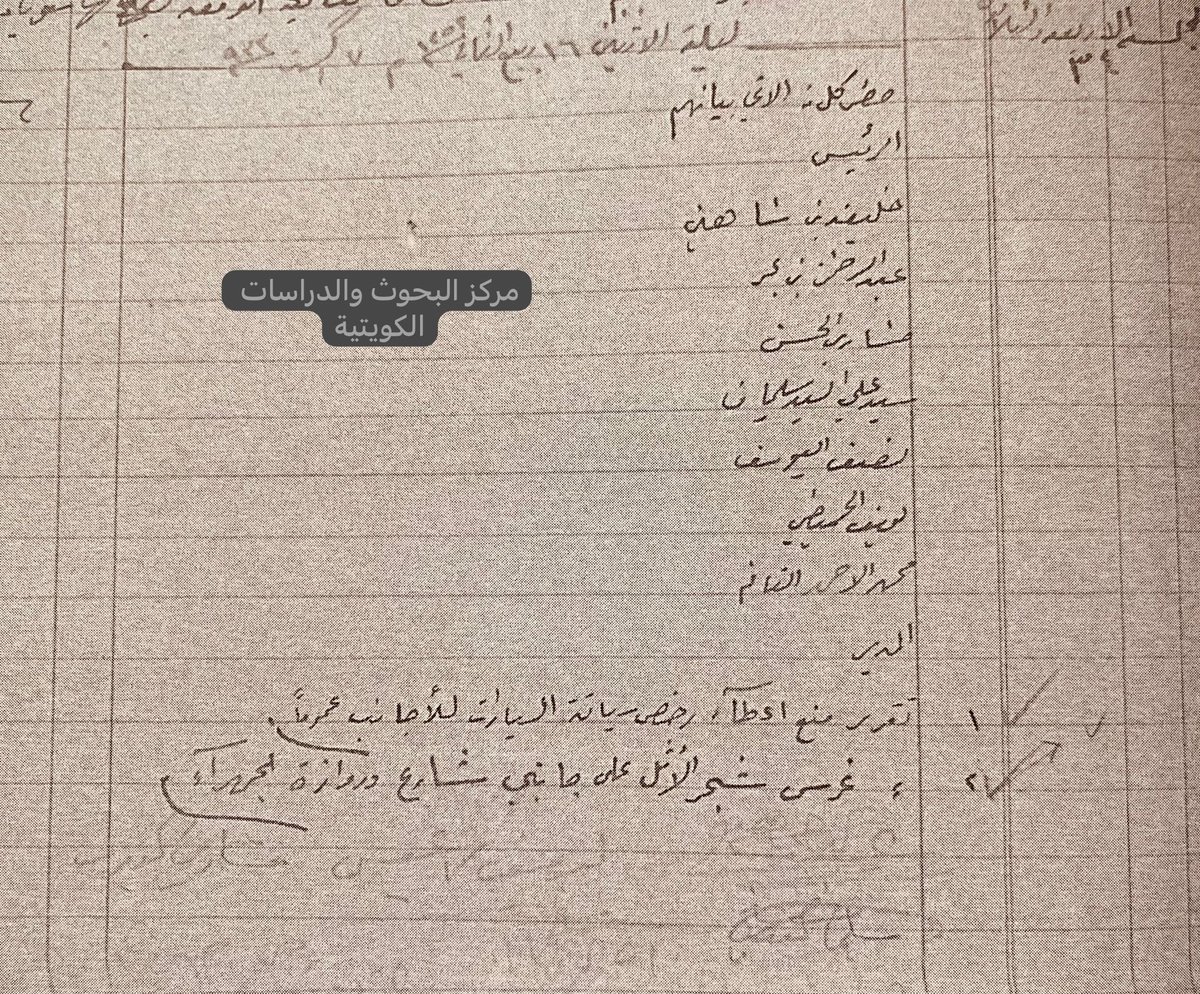 الجلسة الاربعة والثلاثون
٣٤
ليلة الاثنين ١٦ ربيع الثاني ٣٥٢ م ٧ اگست ٩٣٣
حضر كل من الاتي بيانهم
الرئيس
خليفه بن شاهين
عبدالرحمن بن بحر
مشاري الحسن
سيد علي السيد سليمان
نصف اليوسف
يوسف الحميضي
محمد الاحمد الغانم
المدير
١ تقرير منع اعطآء رخص سياقة السيارات للأجانب عموماً
٢ غرس شجر الأثل على جانبي شارع دروازة الجهرآء
مركز البحوث والدراسات
الكويتية